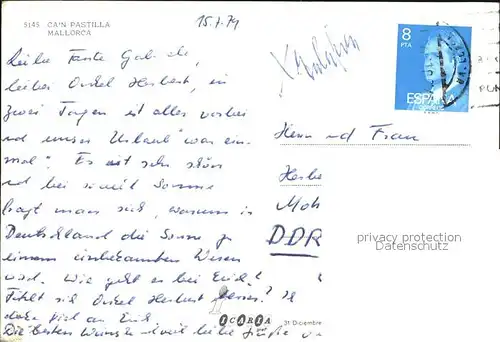 5145 CA'N PASTILLA
MALLORCA
15.7.79
8
PTA
ESPAÑA
CORREOS
Liebe Tante Gabriele,
lieber Onkel Herbert, in
zwei Tagen ist alles vorbei
und unser Urlaub "war ein-
mal". Es ist sehr schön
und bei soviel Sonne
fragt man sich, warum in
Deutschland die Sonne zu
einem unbekannten Wesen
wird. Wie geht es bei Euch?
Fühlt sich Onkel Herbert besser?
Die besten Wünsche und viele liebe Grüße
Herrn und Frau
Herbe
Moh
DDR
privacy protection
Datenschutz
ICARIA
31 Diciembre